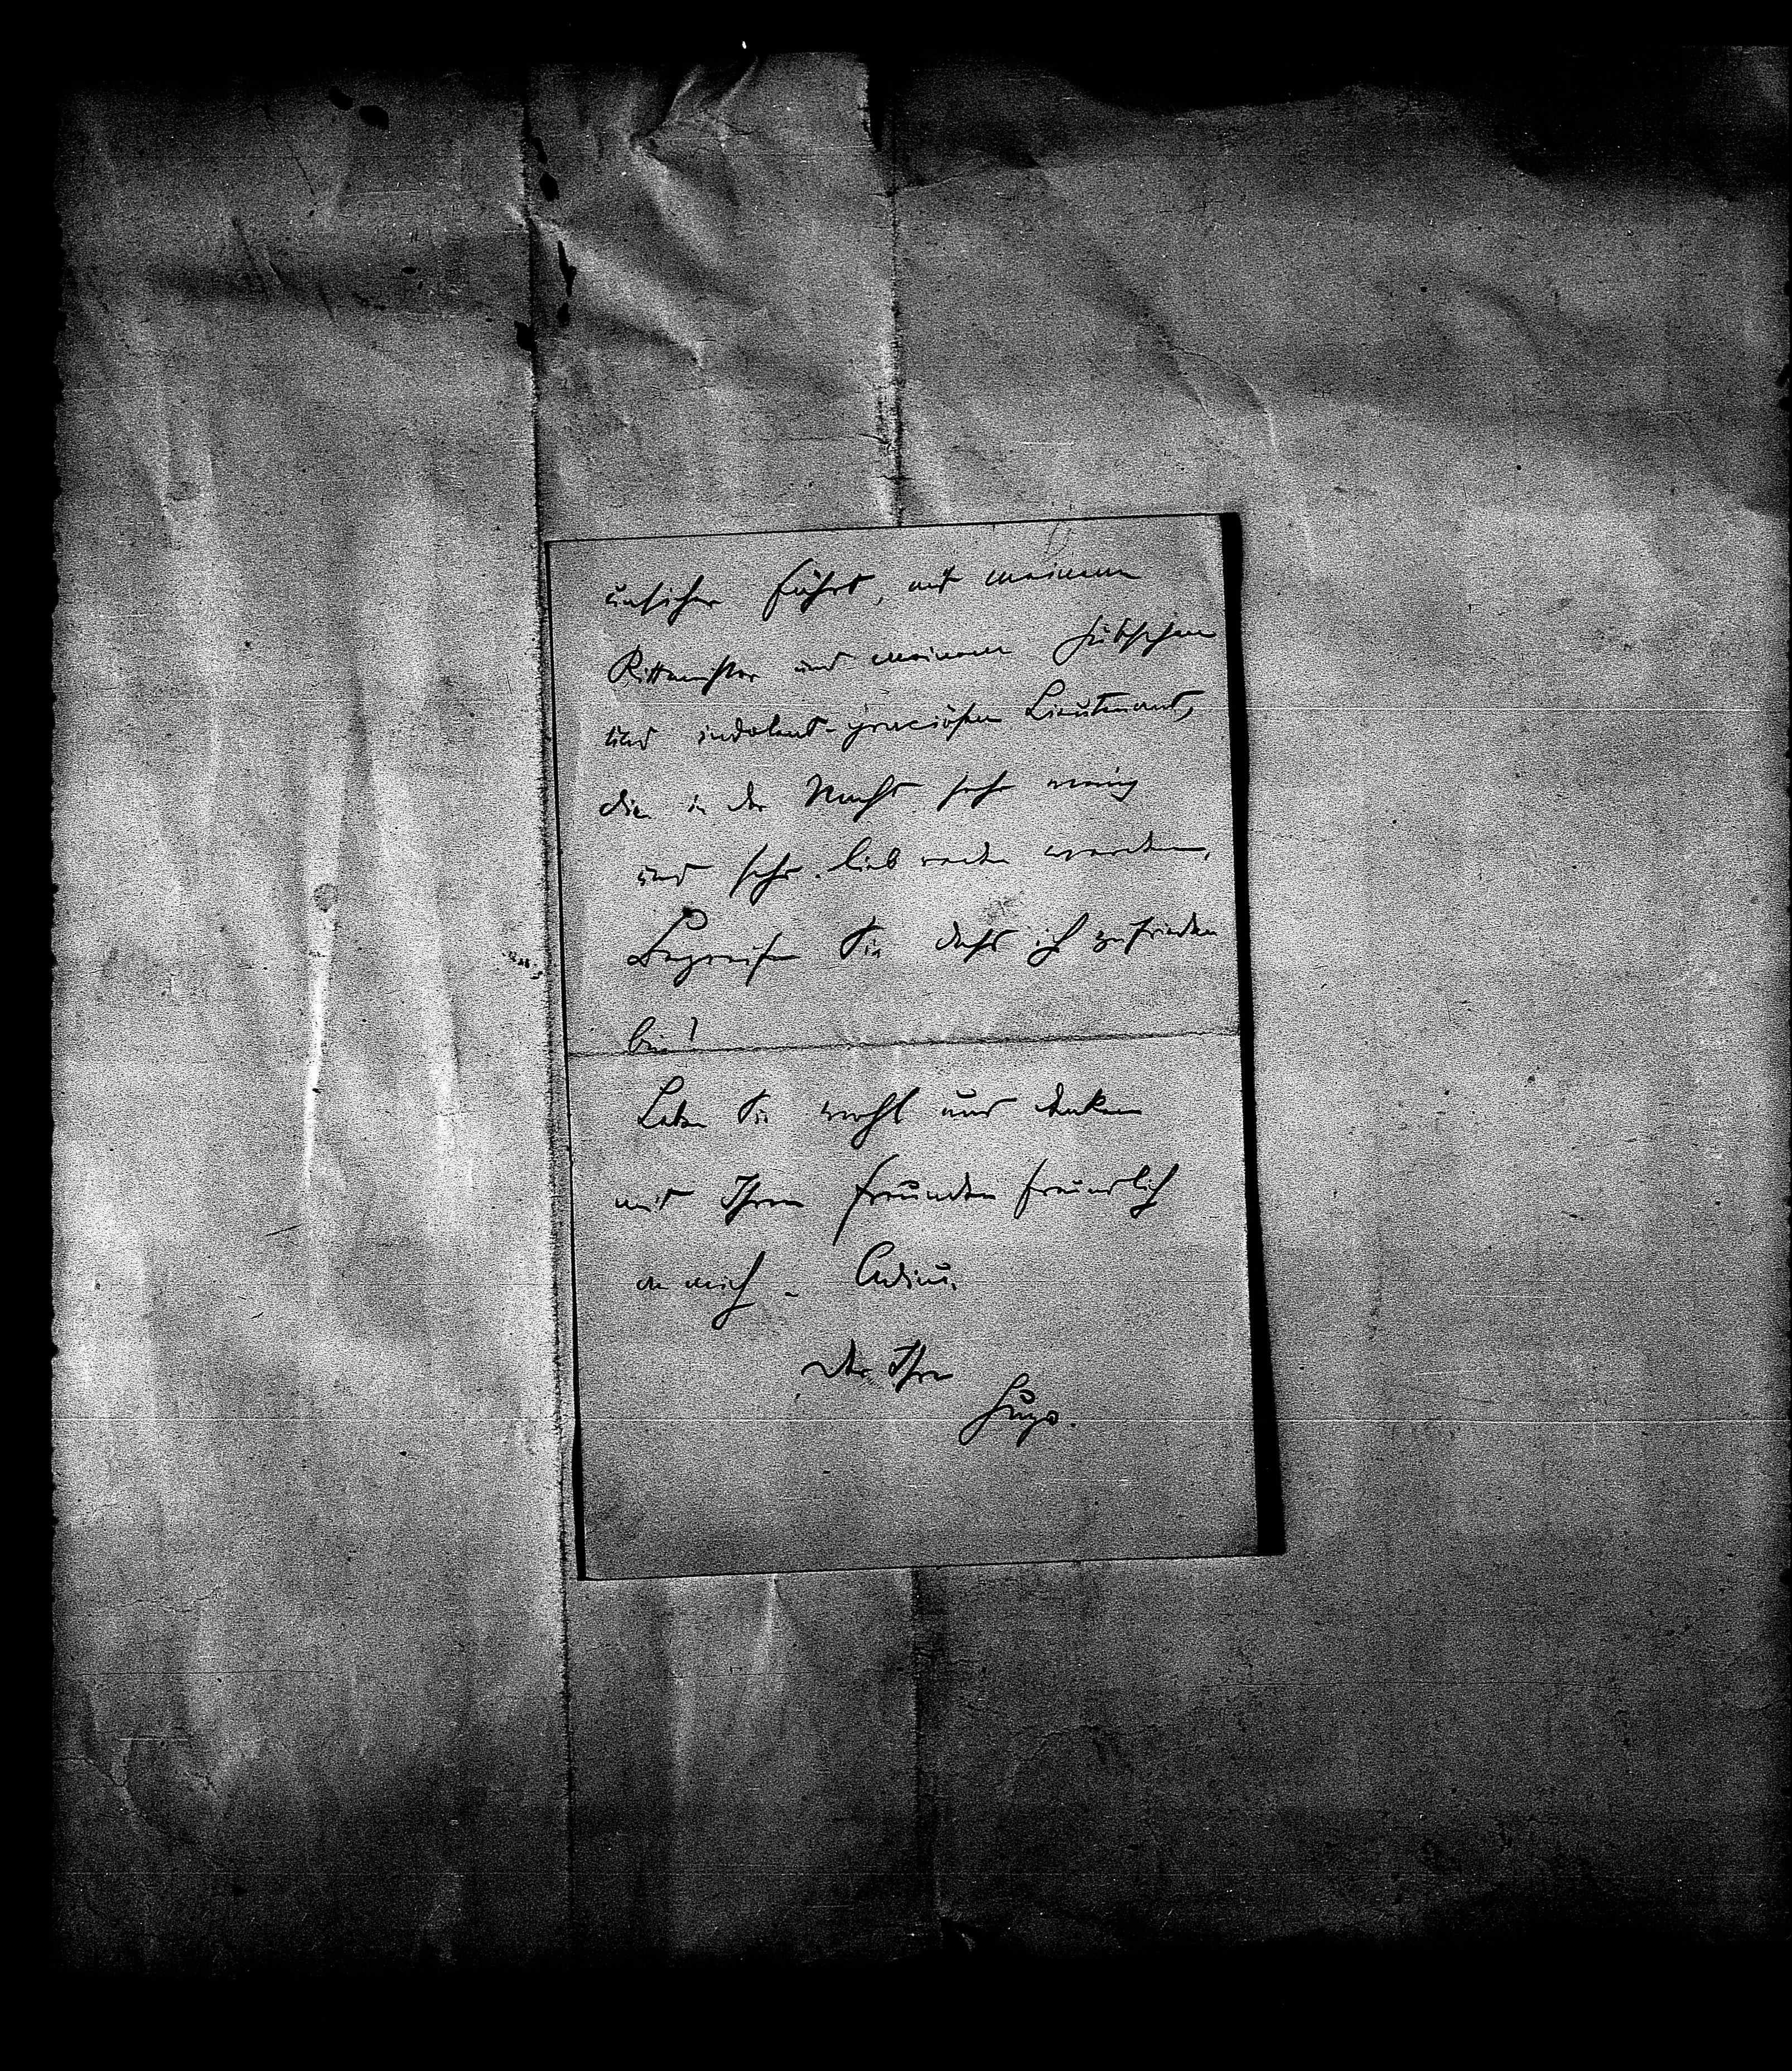 unsicher führt, mit meinem
Rittmeister und meinem hübschen
und indolent-graciösen Lieutenant,
die in der Nacht sehr wenig
und sehr lieb reden werden.
Begreifen Sie dass ich zufrieden
bin?
Leben Sie wohl und denken
mit Ihren Freunden freundlich
an mich. Adieu.
Der Ihre
Hugo.